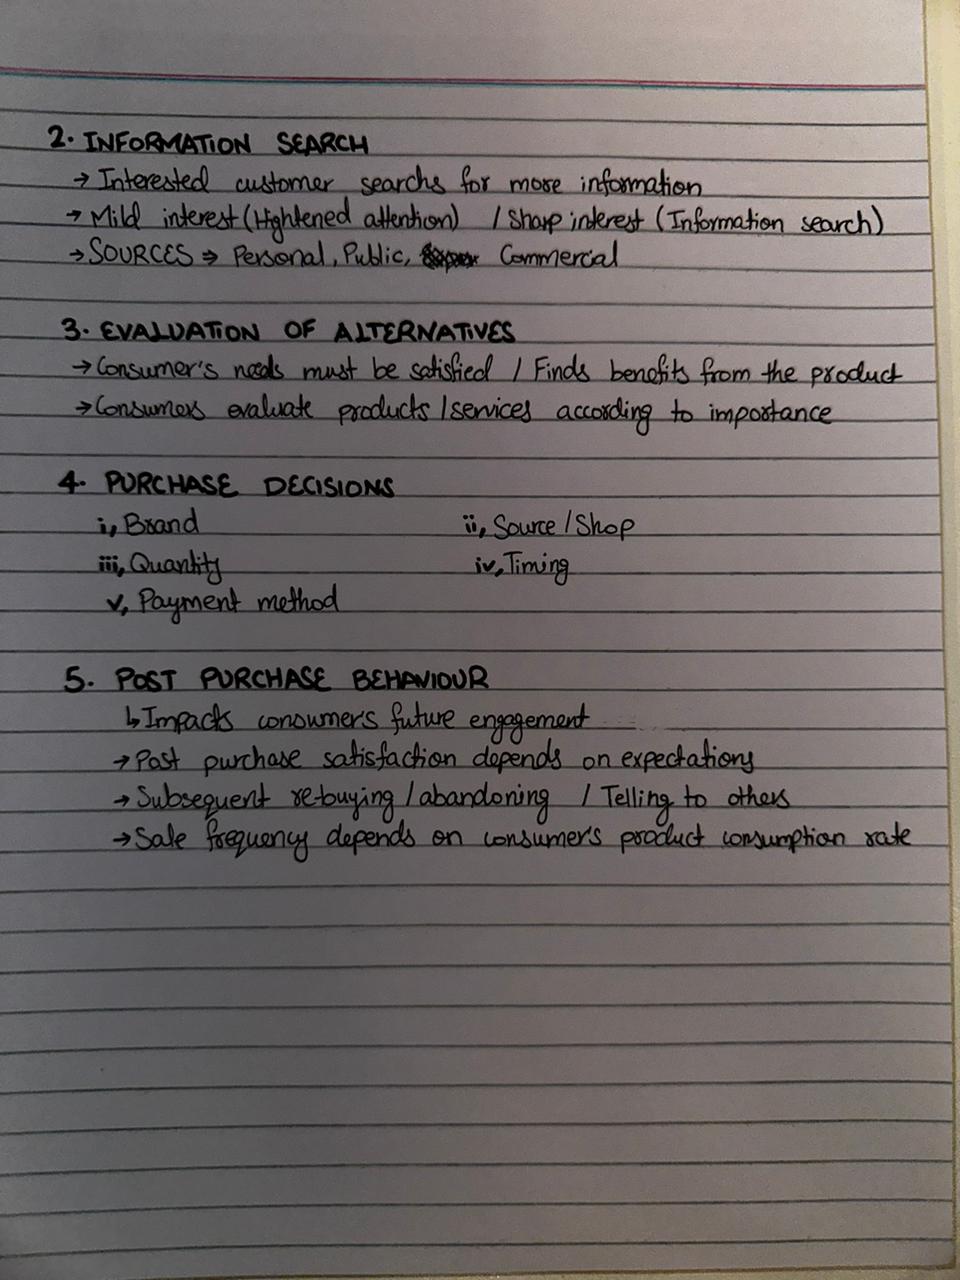 2. INFORMATION SEARCH
→ Interested customer searchs for more information
→ Mild interest (Hightened attention) / Sharp interest (Information search)
→ SOURCES ⇒ Personal, Public, Commercial
3. EVALUATION OF ALTERNATIVES
→ Consumer's needs must be satisfied / Finds benefits from the product
→ Consumers evaluate products / services according to importance
4. PURCHASE DECISIONS
i, Brand ii, Source / Shop
iii, Quantity iv, Timing
v, Payment method
5. POST PURCHASE BEHAVIOUR
↳ Impacts consumer's future engagement
→ Post purchase satisfaction depends on expectations
→ Subsequent re-buying / abandoning / Telling to others
→ Sale frequency depends on consumer's product consumption rate